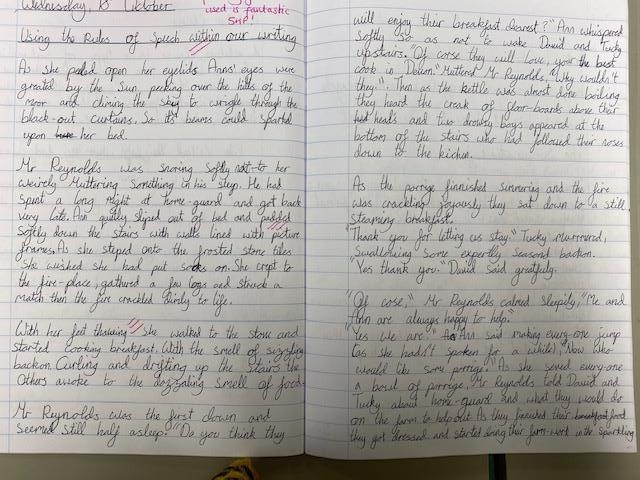 Wednesday, 18 October
used is fantastic
SHP!
Using the Rules of Speech within our writing
As she peeled open her eyelids Anns' eyes were
greated by the Sun, peeking over the hills of the
moor and climing the sky to wriggle through the
black-out curtains. So it's beams could sparkel
upon her bed.
Mr Reynolds was snoring softly next to her
weirely Muttering something in his slep. He had
Spent a long night at home-guard and got back
very late. Ann quitly sliped out of bed and padded
Softly down the stairs with walls lined with picture
frames. As she steped onto the frosted stone tiles
She wished she had put socks on. She crept to
the fire-place, gathered a few logs and struck a
match then the fire crackled dimly to life.
With her feet thawing she walked to the stove and
started cooking breakfast. With the smell of sizzling
backon Curling and drifting up the stairs the
Others awoke to the dazzaling smell of food.
Mr Reynolds was the first down and
Seemed Still half asleep. "Do you think they
will enjoy their breakfast dearest?" Ann whispered
Softly so as not to wake David and Tucky
upstairs. "Of corse they will love, your the best
cook in Devon." Muttered Mr Reynolds, "Why wouldn't
they." Then as the kettle was almost done boiling
they heard the creak of floor-boards above their
heads and two drowsy boys appeared at the
bottom of the stairs who had followed their noses
down to the kichen.
As the porrige finnished simmering and the fire
was crackling joyously they sat down to a still
steaming breakfast.
"Thank you for letting us stay." Tucky murmured,
Swallowing some expertly seasond backon.
"Yes thank you." David Said gratefuly.
"Of corse," Mr Reynolds calmed sleepily, "Me and
Ann are always happy to help."
"Yes we are." Ann said making every-one jump
(as she hadn't spoken for a while), "Now who
would like some porrige." As she served every-one
a bowl of porrige, Mr Reynolds told David and
Tucky about home-guard and what they would do
on the farm to help out. As they finnished their breakfast food
they got dressed and started doing their farm-work in the sparkling